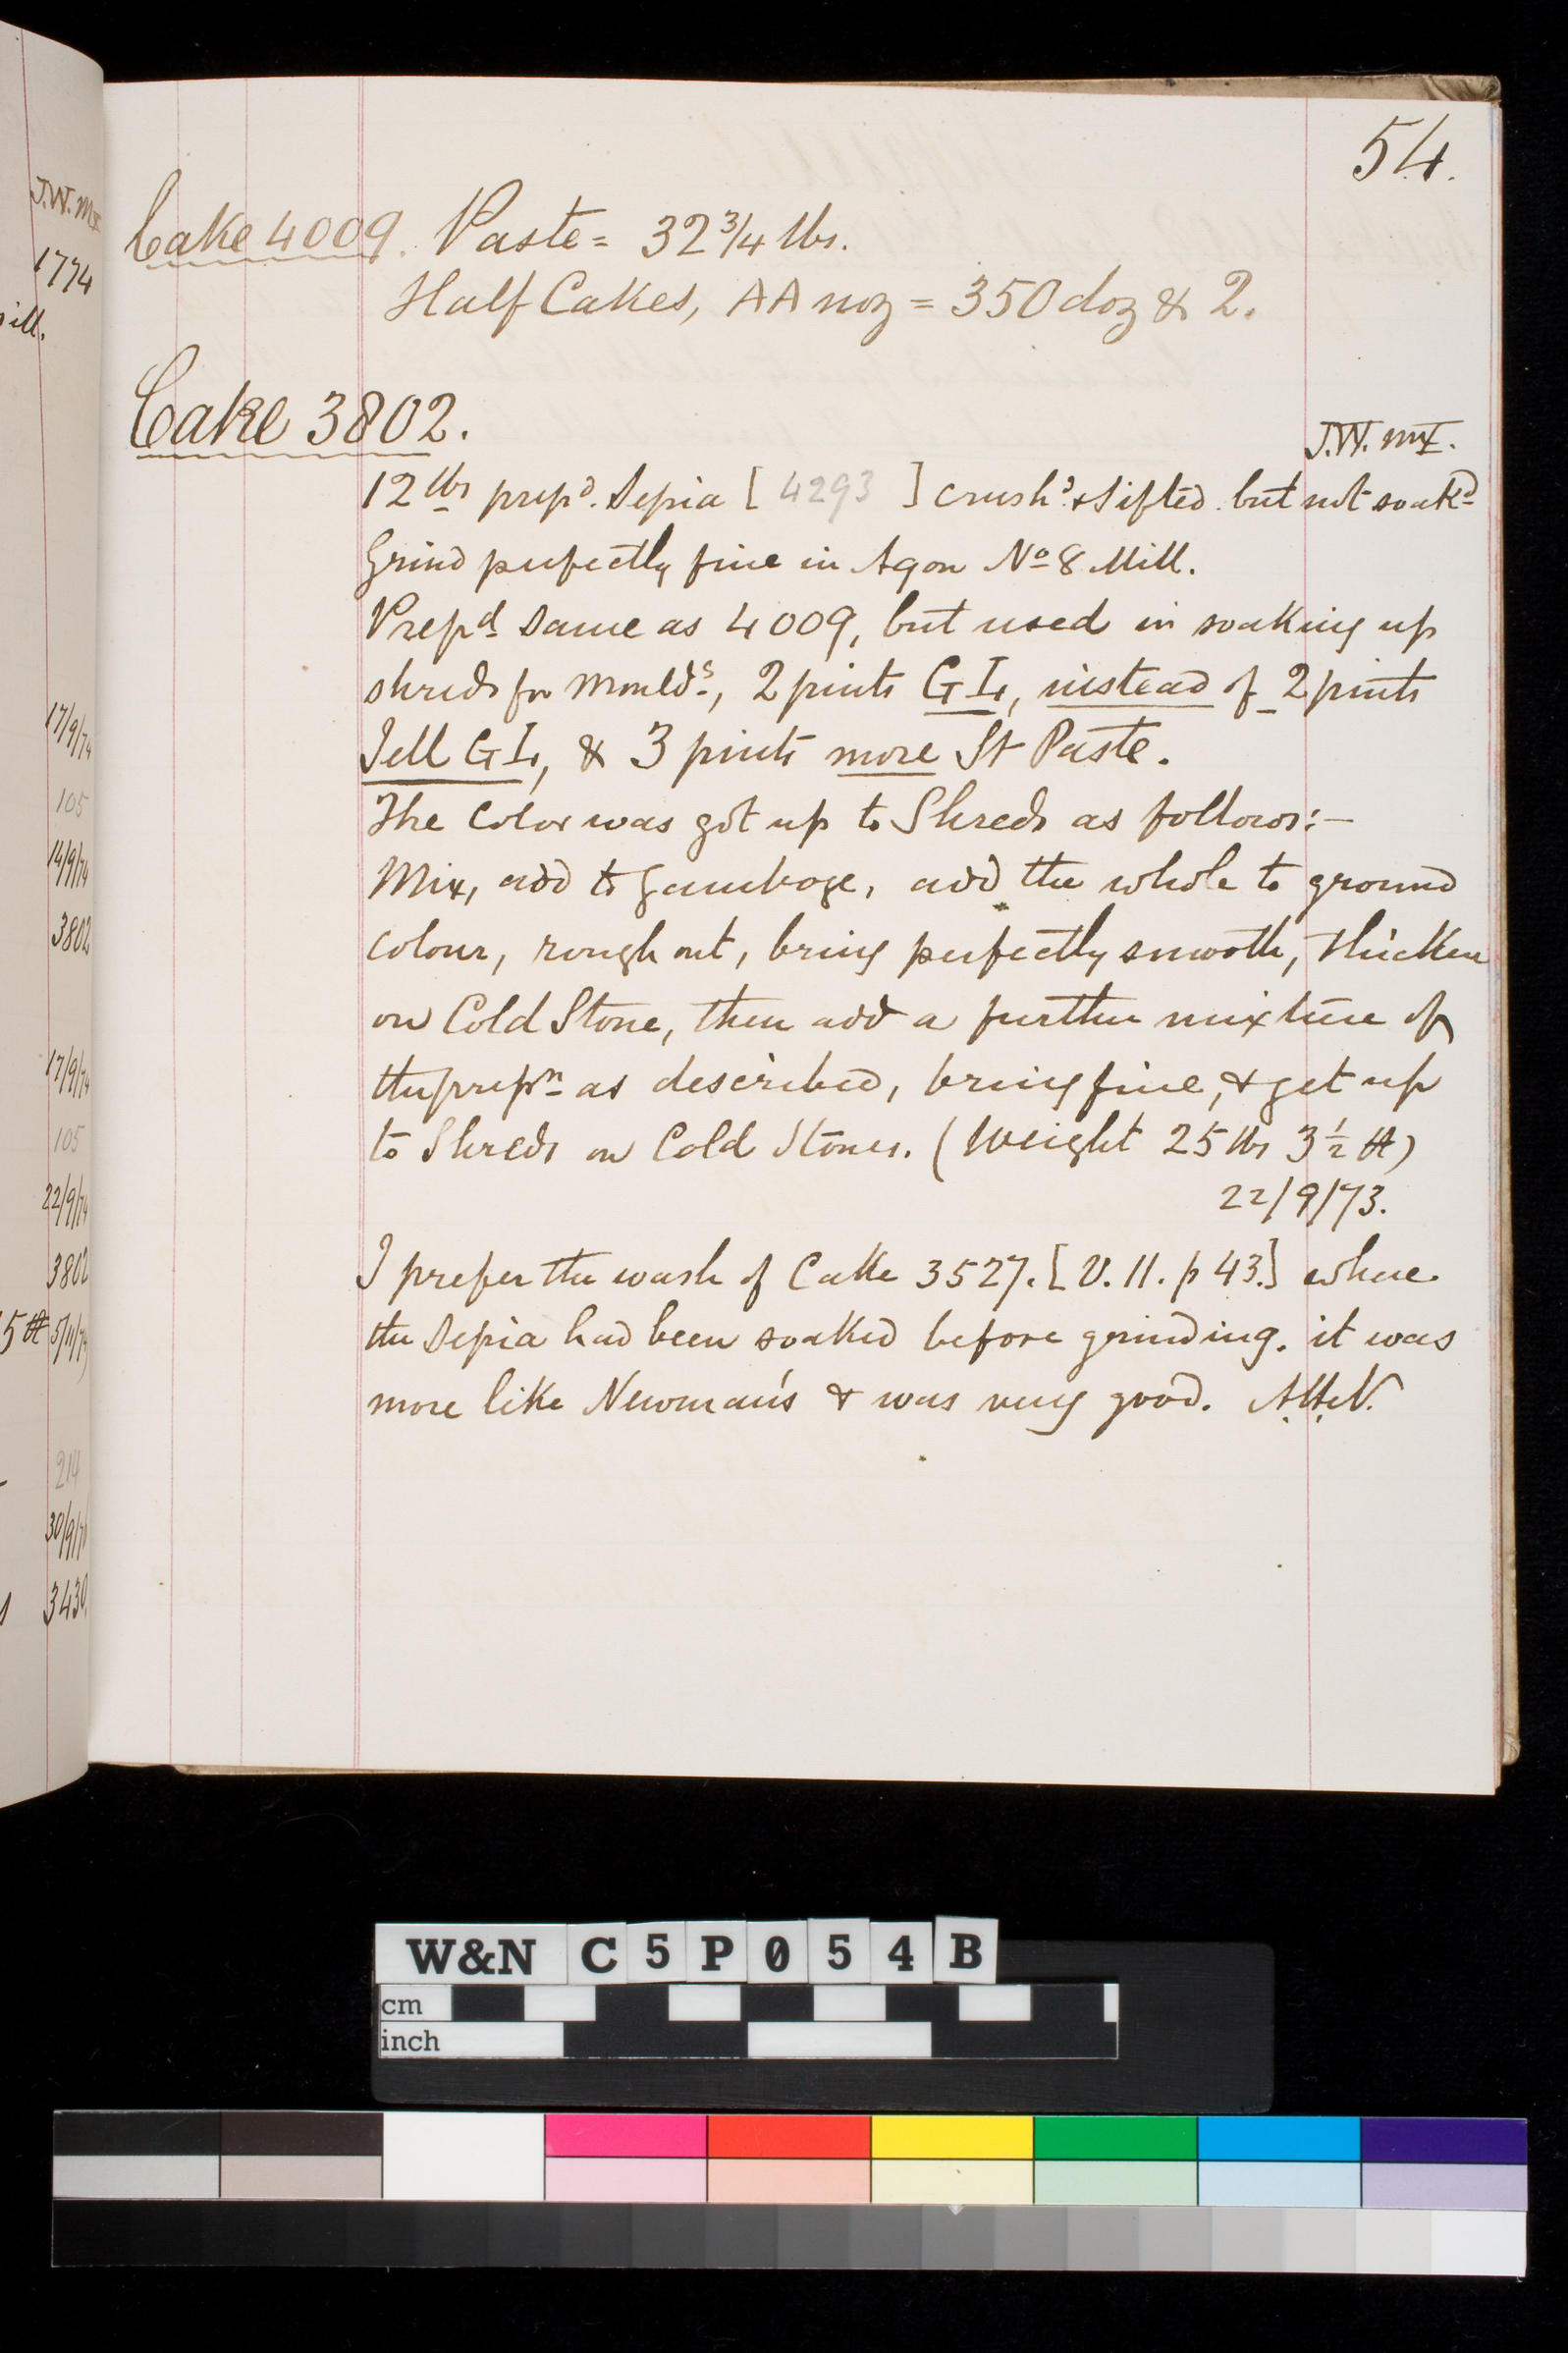 54.
Cake 4009. Paste = 32 3/4 lbs.
Half Cakes, AA noz = 350 doz & 2.
Cake 3802.
J.W.
12 lbs prepd. Sepia [ 4293 ] crushd. & Sifted. but not soakd
Grind perfectly fine in Aqon No 8 Mill.
Prepd same as 4009, but used in soaking up
shreds for Moulds, 2 pints G I, instead of 2 pints
Jell G I, & 3 pints more St Paste.
The Color was got up to Shreds as follows:-
Mix, add to Gamboge, add the whole to ground
colour, rough out, bring perfectly smooth, thicken
on Cold Stone, then add a further mixture of
the prepn as described, bring fine, & get up
to Shreds on Cold Stones. (Weight 25 lbs 3 1/2
22/9/73.
I prefer the wash of Cake 3527. [V. 11. p 43.] where
the Sepia had been soaked before grinding. it was
more like Newman's & was very good. A.H.N.
J.W.
1774
ill.
17/9/74
105
14/9/74
3802
17/9/74
105
22/9/74
3802
5
214
3430
W&N C5P054B
cm
inch